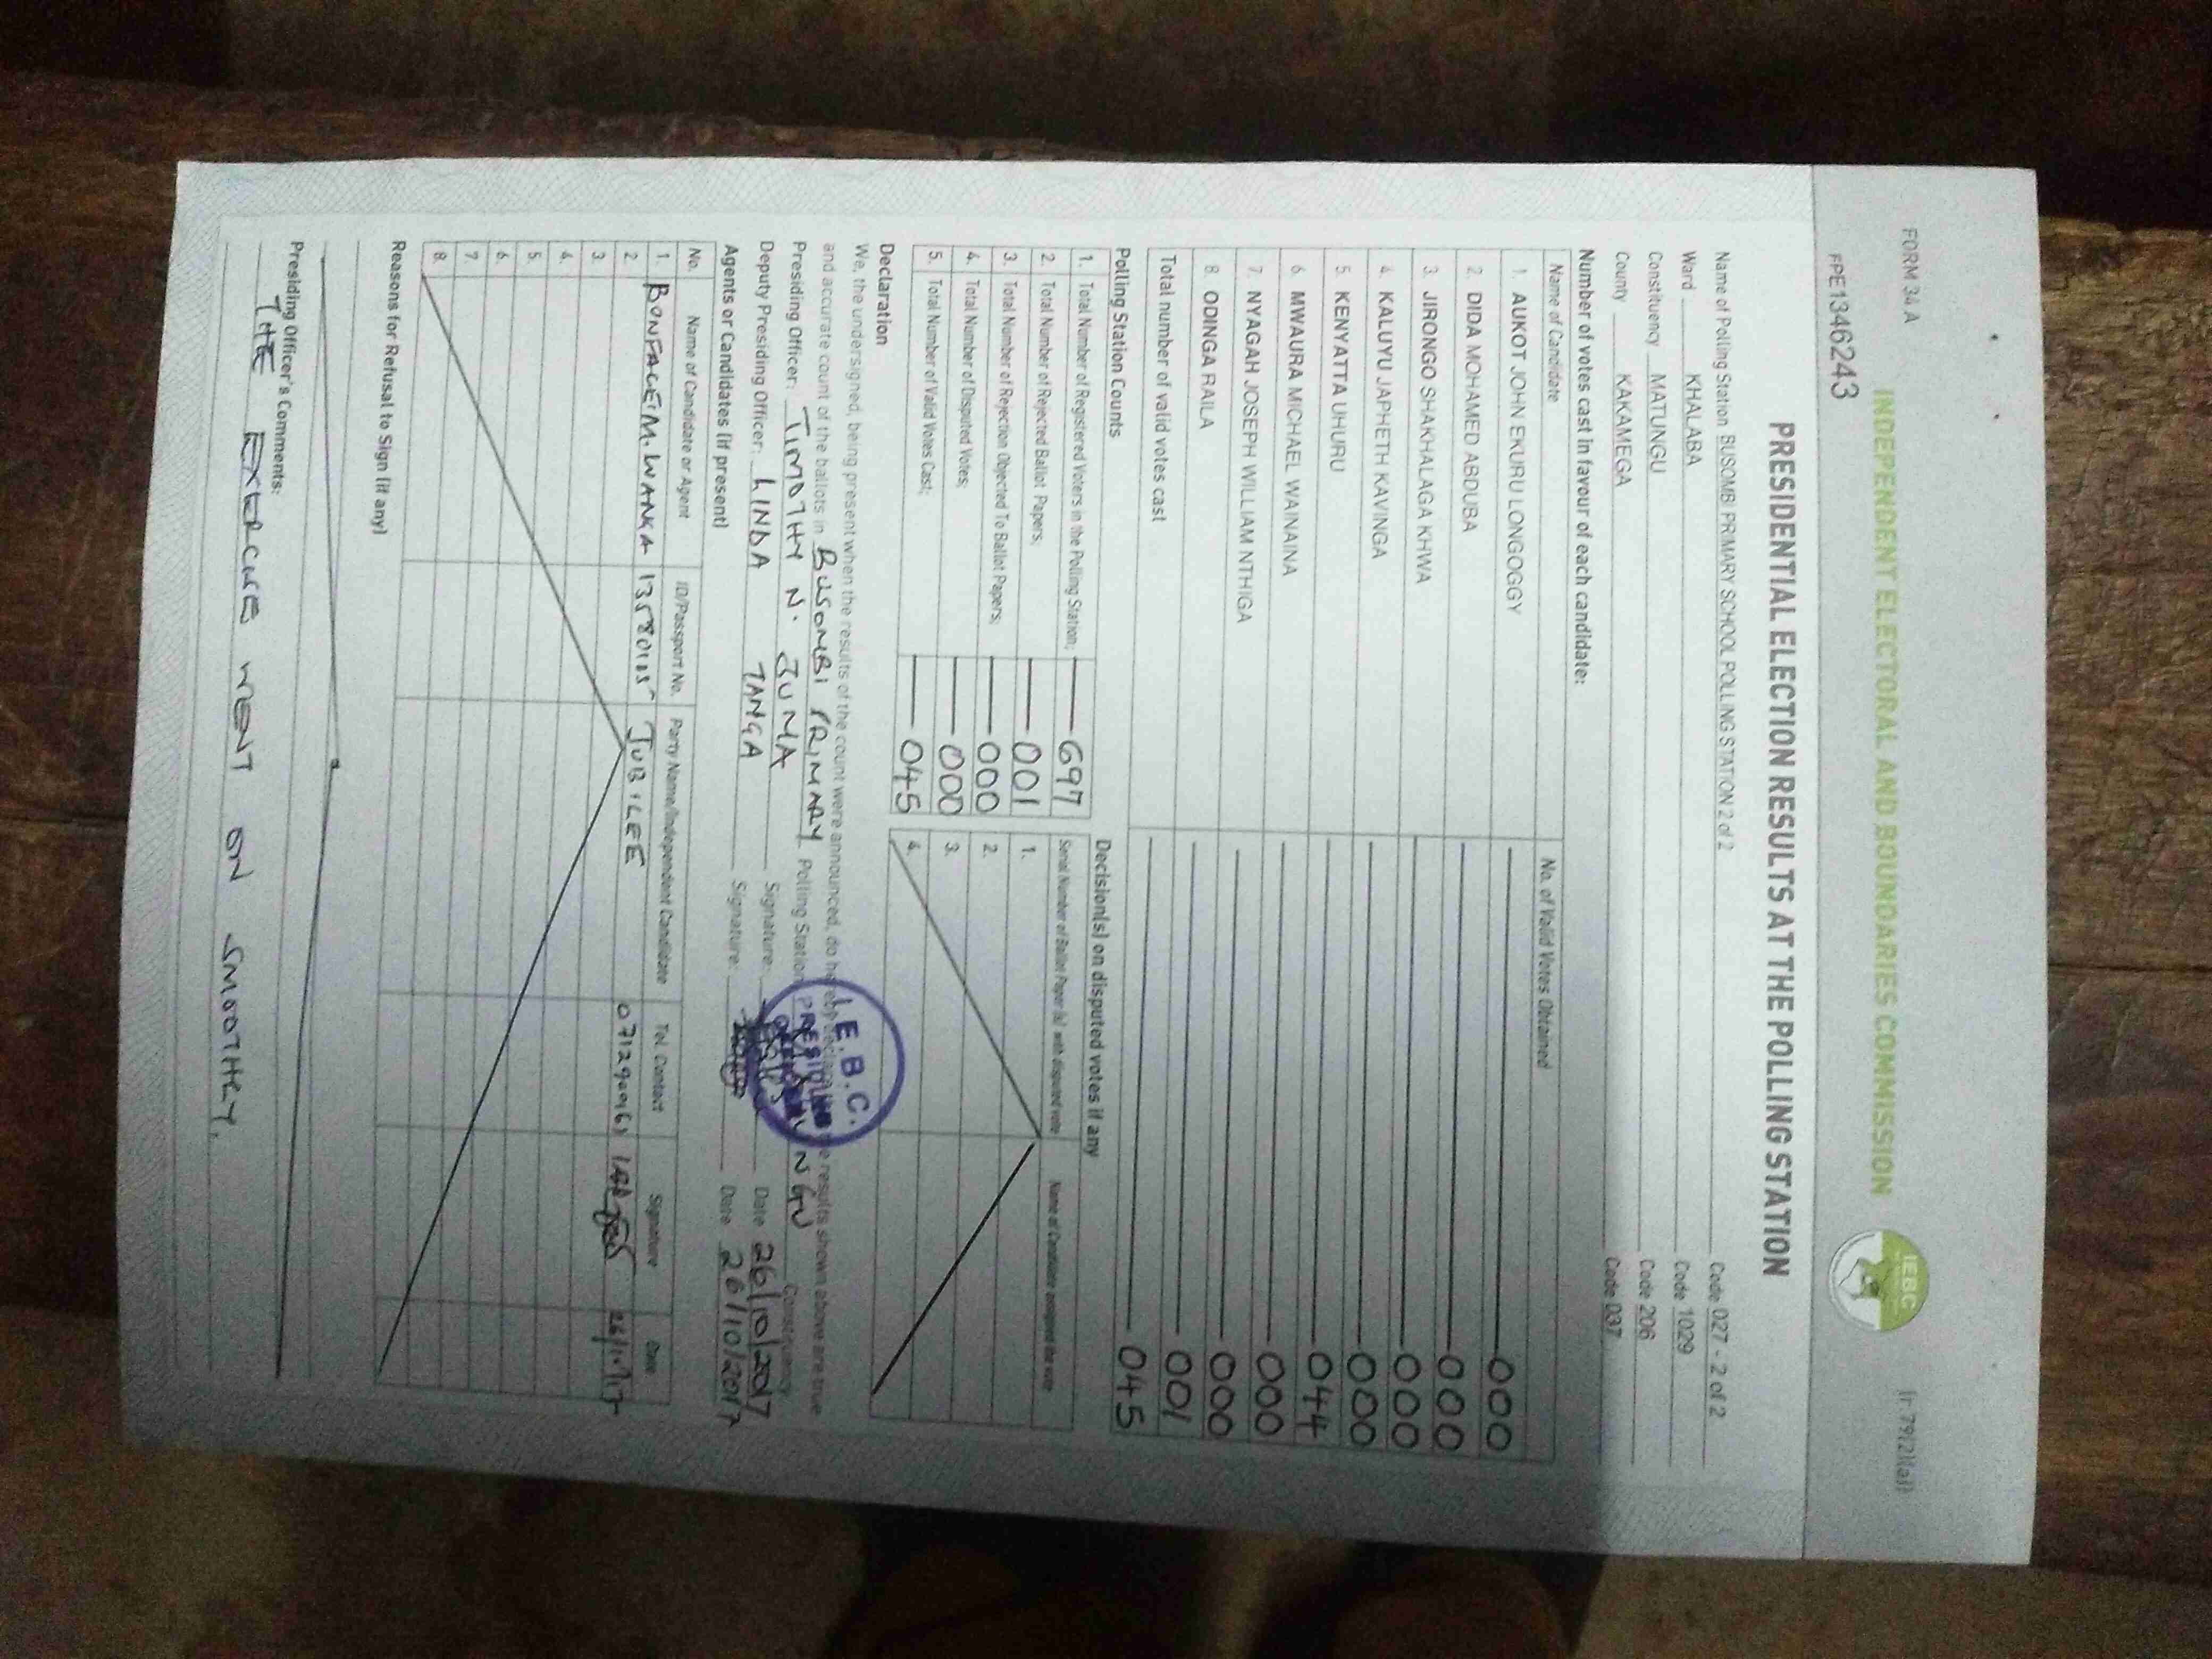 FORM 34 A
(r 79(2)(a))
INDEPENDENT ELECTORAL AND BOUNDARIES COMMISSION
IEBC
FPE1346243
PRESIDENTIAL ELECTION RESULTS AT THE POLLING STATION
Name of Polling Station BUSOMBI PRIMARY SCHOOL POLLING STATION 2 of 2 Code 027 - 2 of 2
Ward KHALABA Code 1029
Constituency MATUNGU Code 206
County KAKAMEGA Code 037
Number of votes cast in favour of each candidate:
Name of Candidate No. of Valid Votes Obtained
1. AUKOT JOHN EKURU LONGOGGY 000
2. DIDA MOHAMED ABDUBA 000
3. JIRONGO SHAKHALAGA KHWA 000
4. KALUYU JAPHETH KAVINGA 000
5. KENYATTA UHURU 044
6. MWAURA MICHAEL WAINAINA 000
7. NYAGAH JOSEPH WILLIAM NTHIGA 000
8. ODINGA RAILA 001
Total number of valid votes cast 045
Polling Station Counts
1. Total Number of Registered Voters in the Polling Station; 697
2. Total Number of Rejected Ballot Papers; 001
3. Total Number of Rejection Objected To Ballot Papers; 000
4. Total Number of Disputed Votes; 000
5. Total Number of Valid Votes Cast; 045
Decision(s) on disputed votes if any
Serial Number of Ballot Paper (s) with disputed vote Name of Candidate assigned the vote
1.
2.
3.
4.
Declaration
We, the undersigned, being present when the results of the count were announced, do hereby declare the results shown above are true
and accurate count of the ballots in BUSOMBI PRIMARY Polling Station Constituency
I.E.B.C.
PRESIDING
Presiding Officer: TIMOTHY N. JUMA Signature: Date 26/10/2017
Deputy Presiding Officer: LINDA TANGA Signature: Date 26/10/2017
Agents or Candidates (if present)
No. Name of Candidate or Agent ID/Passport No. Party Name/Independent Candidate Tel. Contact Signature Date
1. BONFACE M. WANKA JUBILEE 26/10/17
2.
3.
4.
5.
6.
7.
8.
Reasons for Refusal to Sign (if any)
Presiding Officer's Comments:
THE EXERCISE WENT ON SMOOTHLY.